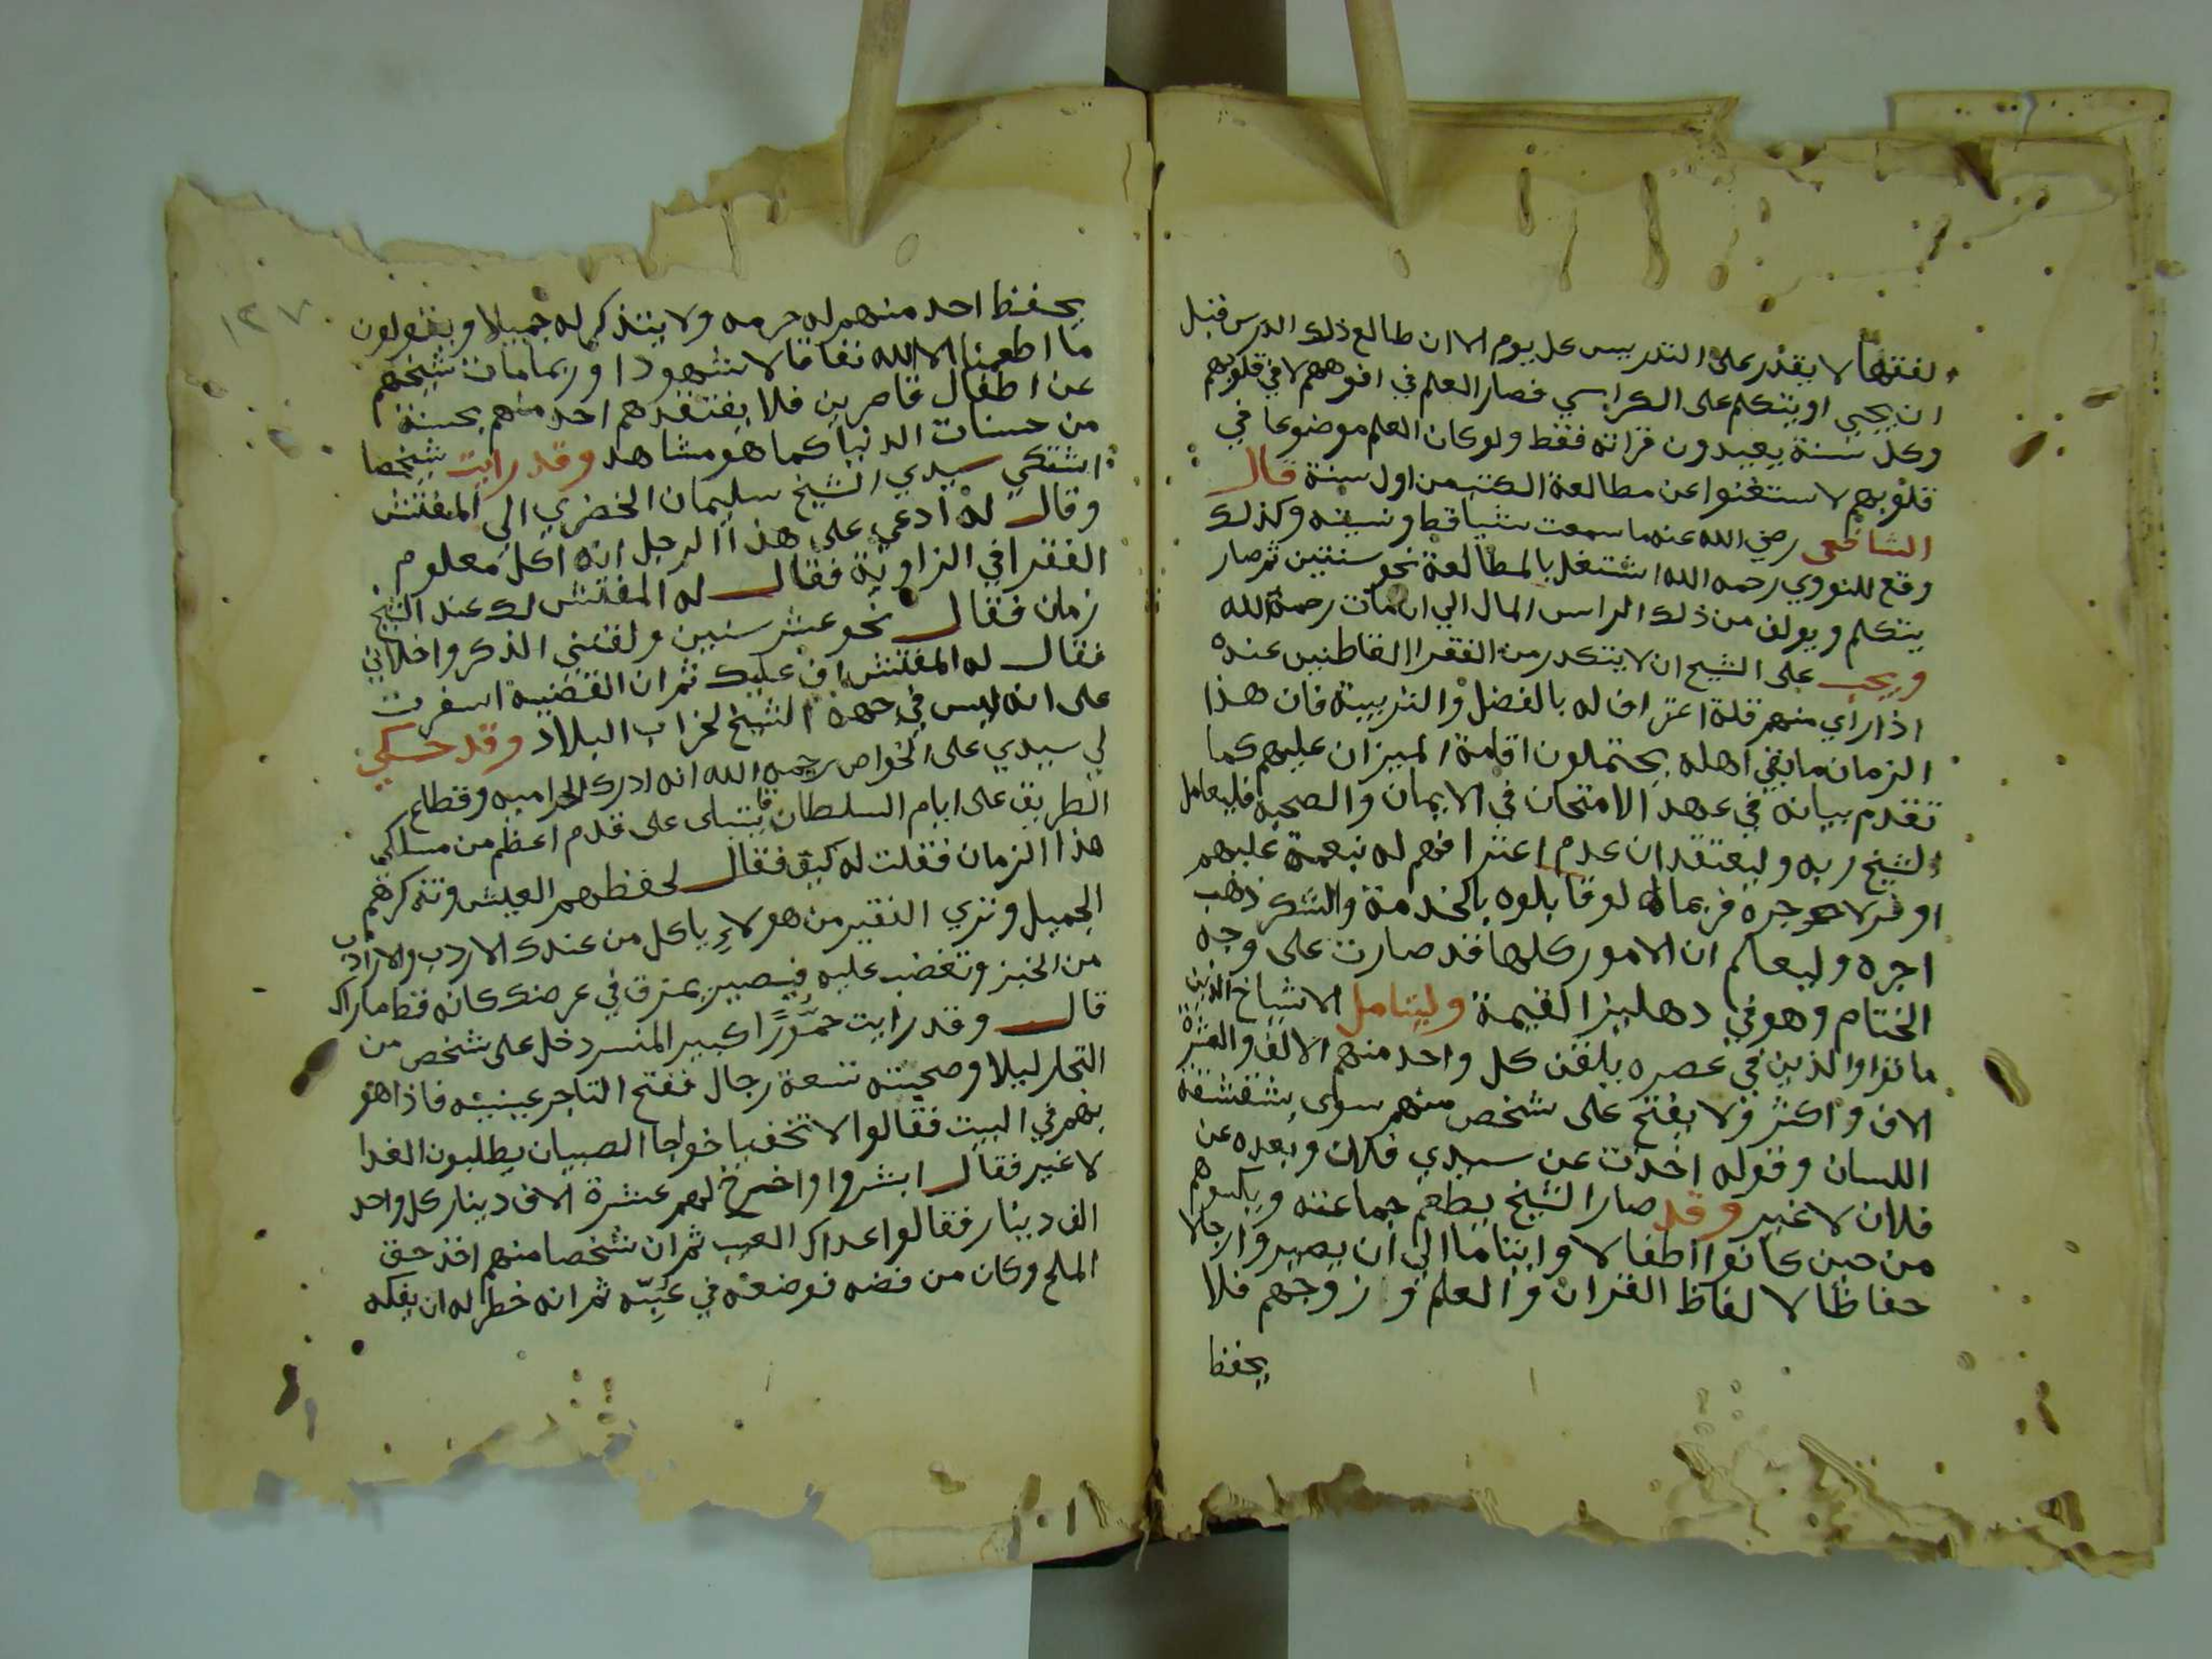 الفقها لا يقدر على التدريس كل يوم الا ان طالع ذلك الدرس قبل
ان يجي او يتكلم على الكراسي فصار العلم في افوههم لا في قلوبهم
وكل سنة يعيدون قراته فقط ولو كان العلم موضوعا في
قلوبهم لاستغنوا عن مطالعة الكتب من اول سنة قال
الشافعى رضي الله عنه ما سمعت شيا قط ونسيته وكذلك
وقع للنووي رحمه الله اشتغل بالمطالعة نحو سنتين ثم صار
يتكلم ويولف من ذلك الراس المال الي ان مات رحمة الله
ويجب على الشيح ان لا يتكدر من الفقرا القاطنين عنده
اذا راي منهم قلة اعتراف له بالفضل والتربية فان هذا
الزمان ما بقي اهله يحتملون اقامة الميزان عليهم كما
تقدم بيانه في عهد الامتحان في الايمان والصحبة فليعامل
الشيخ ربه وليعتقد ان عدم اعترافهم له بنعمة عليهم
اوفر لاجره فربما لو قابلوه بالخدمة والشكر ذهب
اجره وليعلم ان الامور كلها قد صارت على وجه
الختام وهو في دهليز القيمة وليتامل الاشياخ الذين
ماتوا والذين في عصره يلقن كل واحد منهم الالف والعشرة
الاف واكثر ولا يفتح على شخص منهم سوى بشقشقة
اللسان وقوله اخذت عن سيدي فلان وبعده عن
فلان لا غير وقد صار الشيخ يطعم جماعته ويكسوهم
من حين كانوا اطفالا وايتاما الي ان يصيروا رجالا
حفاظا لالفاظ القران والعلم وزوجهم فلا
يحفظ
١٢٧
يحفظ احد منهم له حرمه ولا يتذكر له جميلا ويقولون
ما اطعمنا الا الله نفاقا لا شهودا وربما مات شيخهم
عن اطفال قاصرين فلا يفتقدهم احد منهم بحسنة
من حسنات الدنيا كما هو مشاهد وقد رايت شيخصا
اشتكي سيدي الشيخ سليمان الخضري الى المفتش
وقال له ادعي على هذا الرجل انه اكل معلوم
الفقرا في الزاوية فقال له المفتش لك عند الشيخ
زمان فقال نحو عشر سنين ولقنني الذكر واخلاني
فقال له المفتش اف عليك ثم ان القضية اسفرت
على انه ليس في جهة الشيخ لخراب البلاد وقد حكي
لي سيدي على الخواص رحمه الله انه ادرك الحراميه وقطاع
الطريق على ايام السلطان قايتباى على قدم اعظم من مسلكي
هذا الزمان فقلت له كيف فقال لحفظهم العيش وتذكرهم
الجميل وتري الفقير من هولاء ياكل من عندك الاردب والارادب
من الخبز وتغضب عليه فيصير يمزق في عرضك كانه قط ماراك
قال وقد رايت حمورا كبير المنسر دخل على شخص من
التجار ليلا وصحبته تسعة رجال ففتح التاجر عينيه فاذا هو
بهم في البيت فقالوا لا تخف يا خواجا الصبيان يطلبون الغدا
لا غير فقال ابشروا واخرج لهم عشرة الاف دينار كل واحد
الف دينار فقالوا عداك العيب ثم ان شخصا منهم اخذ حق
الملح وكان من فضه فوضعه في عبه ثم انه خطر له ان يفكه